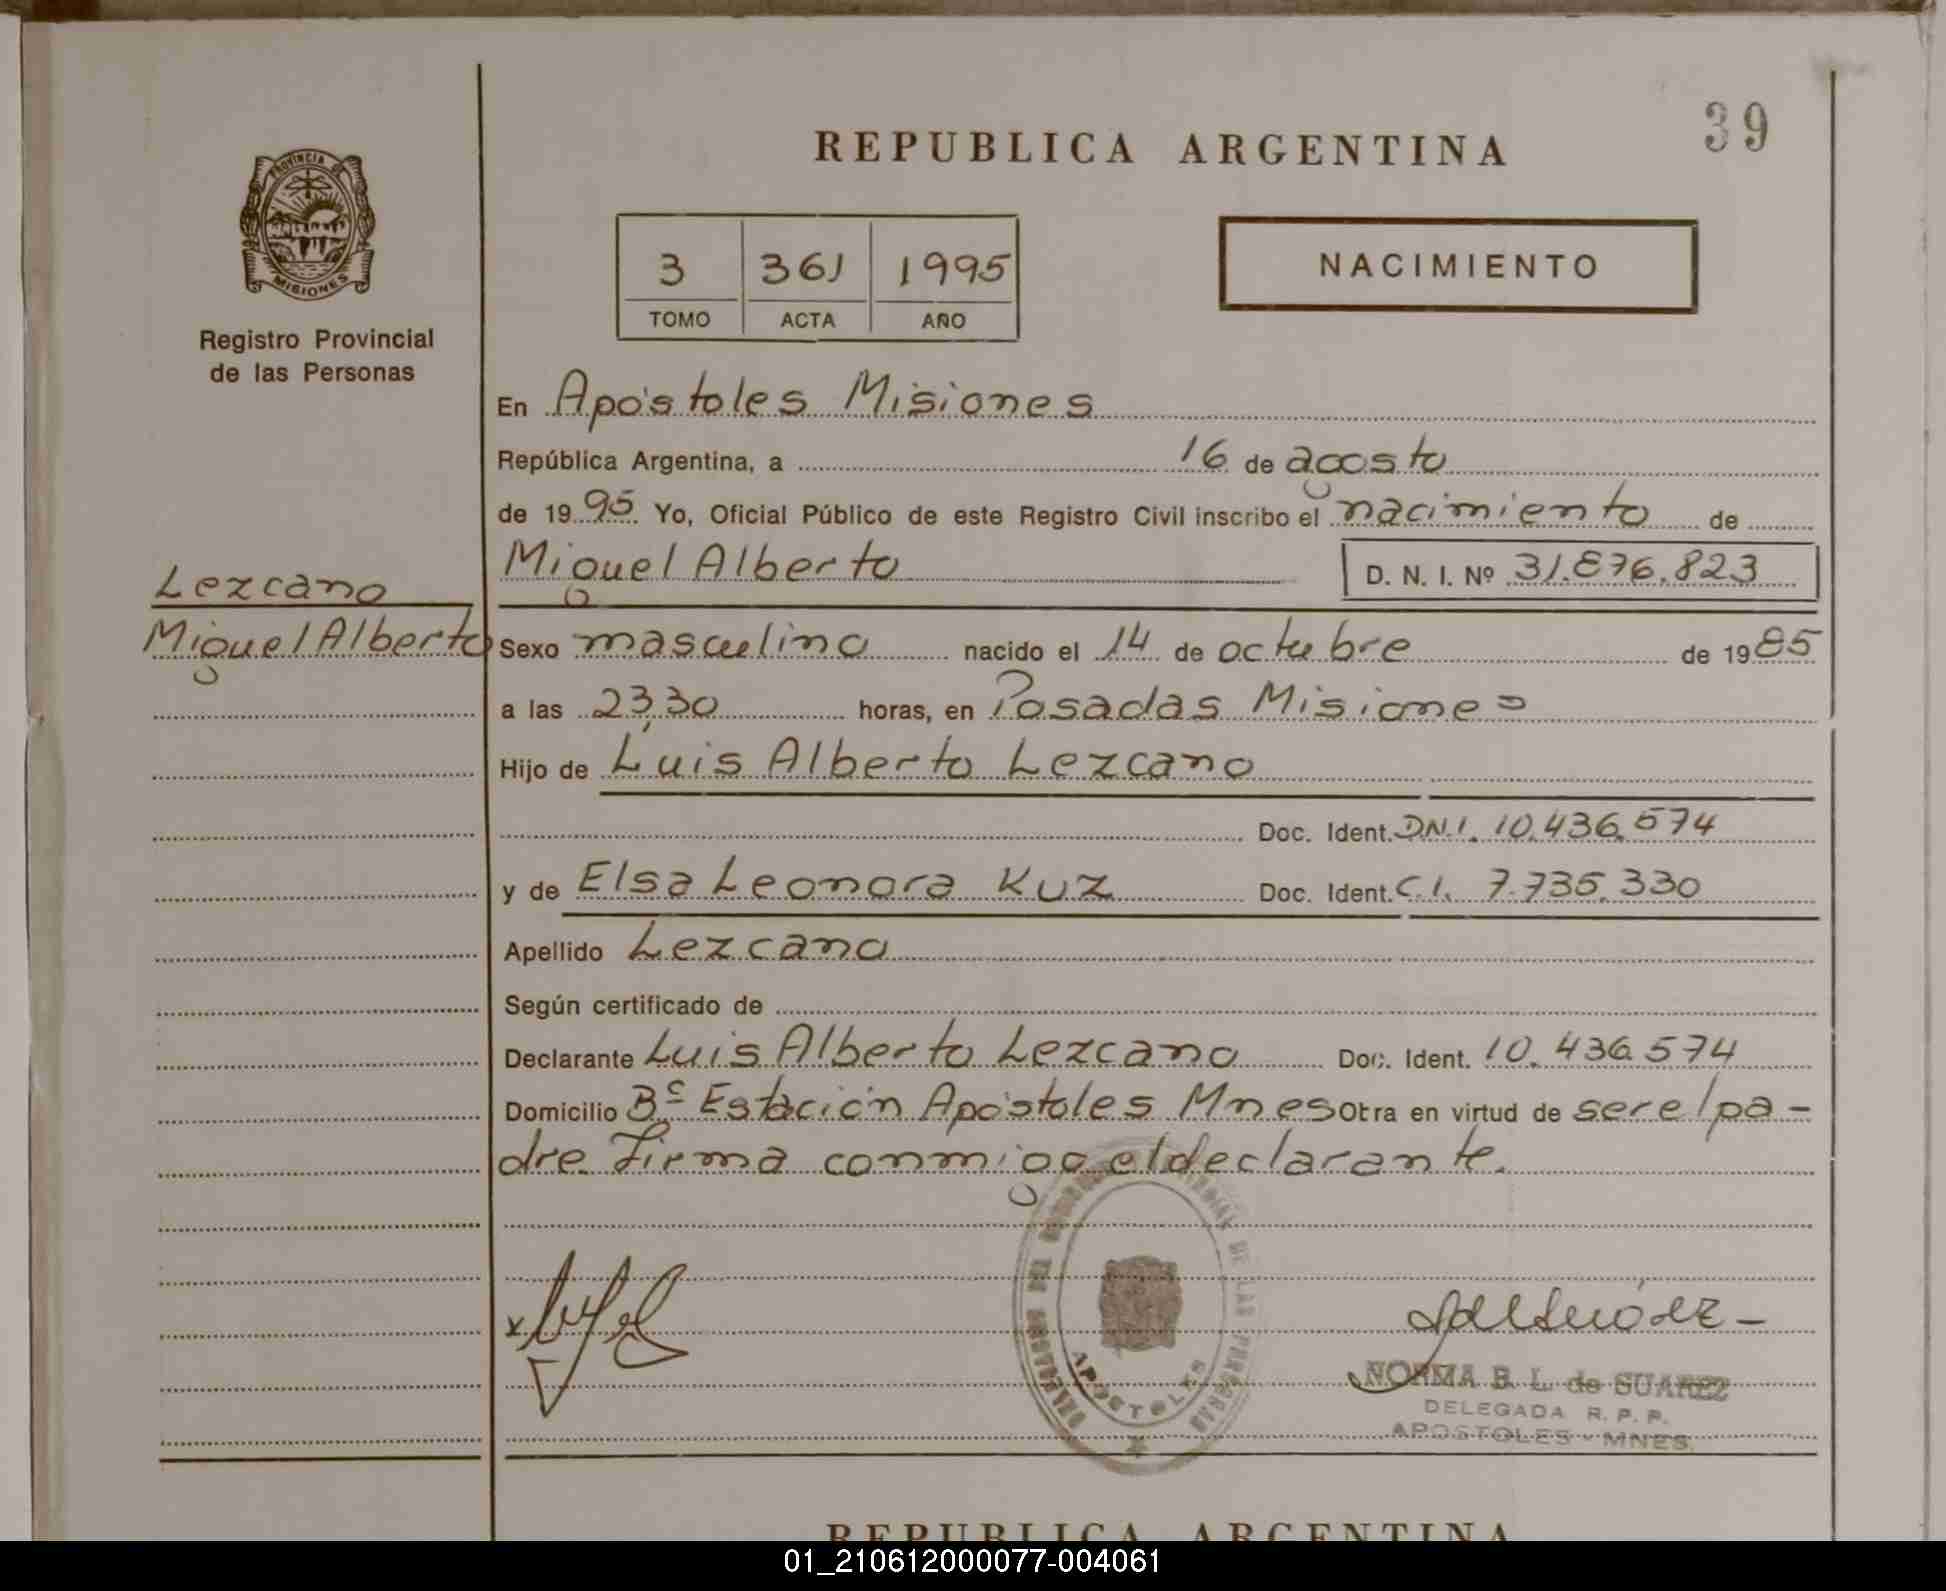 39
REPUBLICA ARGENTINA
PROVINCIA DE
MISIONES
Registro Provincial
de las Personas
3 361 1995
TOMO ACTA AÑO
NACIMIENTO
En Apóstoles Misiones
República Argentina, a 16 de agosto
de 1995 Yo, Oficial Público de este Registro Civil inscribo el nacimiento de
Miguel Alberto D. N. I. Nº 31.876.823
Lezcano
Miguel Alberto
Sexo masculino nacido el 14 de octubre de 1985
a las 23,30 horas, en Posadas Misiones
Hijo de Luis Alberto Lezcano
Doc. Ident. D.N.I. 10.436.574
y de Elsa Leonora Kuz Doc. Ident. C.I. 7.735.330
Apellido Lezcano
Según certificado de
Declarante Luis Alberto Lezcano Doc. Ident. 10.436.574
Domicilio Bº Estación Apóstoles Mnes Otra en virtud de ser el pa-
dre. Firma conmigo el declarante.
DE LAS PERSONAS
APOSTOLES
NORMA B. L. de SUAREZ
DELEGADA R. P. P.
APOSTOLES - MNES.
REPUBLICA ARGENTINA
01_210612000077-004061